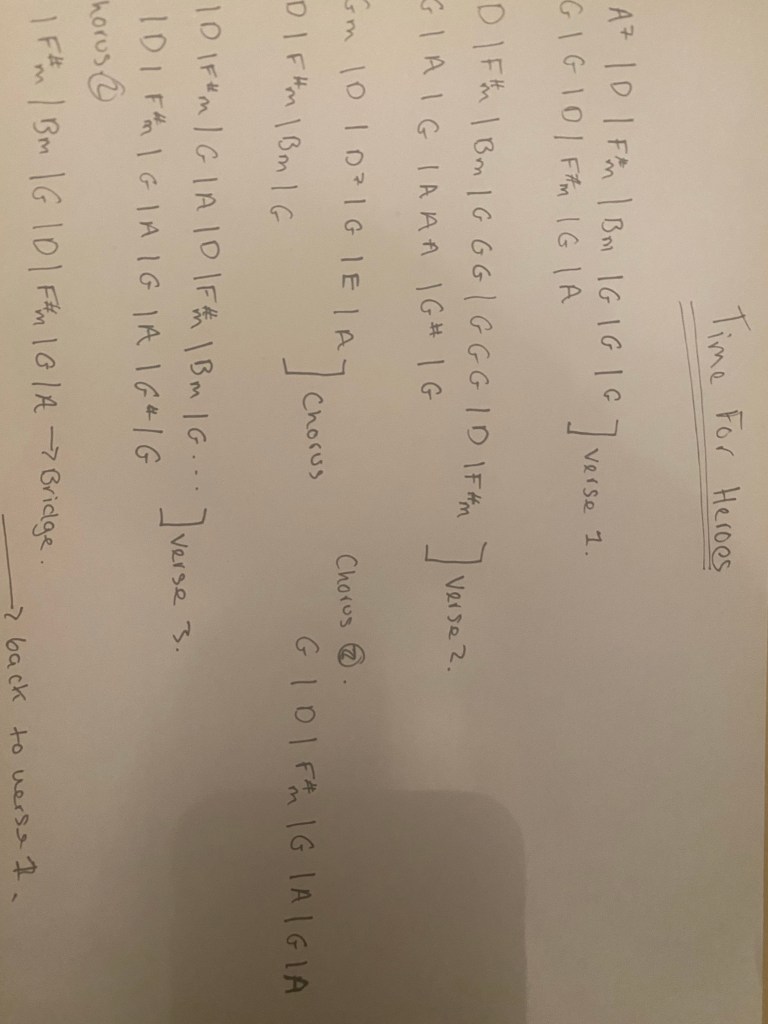 Time For Heroes
A7 | D | F#m | Bm | G | G | G ] verse 1.
G | G | D | F#m | G | A
D | F#m | Bm | G G G | G G G | D | F#m ] verse 2.
G | A | G | A A A | G# | G
Gm | D | D7 | G | E | A ] Chorus
D | F#m | Bm | G
Chorus ②.
G | D | F#m | G | A | G | A
| D | F#m | G | A | D | F#m | Bm | G... ] verse 3.
| D | F#m | G | A | G | A | G# | G
horus ②
| F#m | Bm | G | D | F#m | G | A → Bridge.
→ back to verse 1.